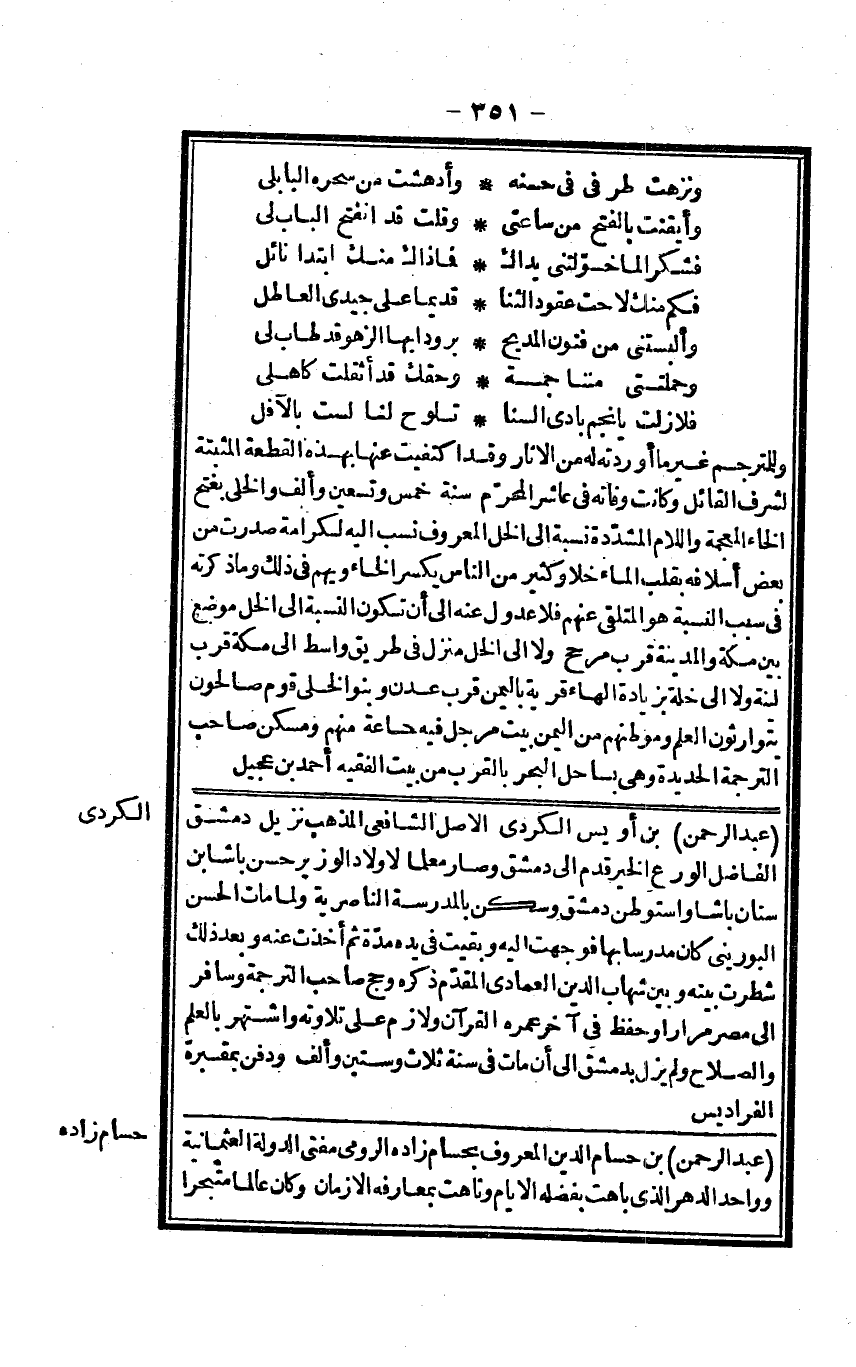 - ٣٥١ -
ونزهت طرفى فى حسنه * وأدهشت من سحره البابلى
وأيقنت بالفتح من ساعتى * وقلت قد انفتح الباب لى
فشكرا لما خوّلتنى يداك * فاذاك منك ابتدا نائل
فكم منك لاحت عقود الثنا * قديما على جيدى العاطل
وألبستنى من فنون المديح * برودا بها الزهو قد طاب لى
وحملتنى مننا جمة * وحقك قد أثقلت كاهلى
فلا زلت يا نجم بادى السنا * تلوح لنا لست بالآفل
وللمترجم غير ما أوردته له من الاثار وقد اكتفيت عنها بهذه القطعة المثبتة
لشرف القائل وكانت وفاته فى عاشر المحرّم سنة خمس وتسعين وألف والخلى بفتح
الخاء المعجمة واللام المشدّدة نسبة الى الخل المعروف نسب اليه لكرامة صدرت من
بعض أسلافه بقلب الماء خلا وكثير من الناس يكسر الخاء ويهم فى ذلك وماذكرته
فى سبب النسبة هو المتلقى عنهم فلا عدول عنه الى أن تكون النسبة الى الخل موضع
بين مكة والمدينة قرب مرجح ولا الى الخل منزل فى طريق واسط الى مكة قرب
لينة ولا الى خلة بزيادة الهاء قرية باليمن قرب عدن وبنو الخلى قوم صالحون
يتوارثون العلم وموطنهم من اليمن بيت مرجل فيه جماعة منهم ومسكن صاحب
الترجمة الحديدة وهى بساحل البحر بالقرب من بيت الفقيه أحمد بن عجيل
الكردى
(عبد الرحمن) بن أويس الكردى الاصل الشافعى المذهب نزيل دمشق
الفاضل الورع الخير قدم الى دمشق وصار معلما لاولاد الوزير حسن باشا بن
سنان باشا واستوطن دمشق وسكن بالمدرسة الناصرية ولما مات الحسن
البورينى كان مدرسا بها فوجهت اليه وبقيت فى يده مدّة ثم أخذت عنه وبعد ذلك
شطرت بينه وبين شهاب الدين العمادى المقدّم ذكره وحج صاحب الترجمة وسافر
الى مصر مرارا وحفظ فى آخر عمره القرآن ولازم على تلاوته واشتهر بالعلم
والصلاح ولم يزل بدمشق الى أن مات فى سنة ثلاث وستين وألف ودفن بمقبرة
الفراديس
حسام زاده
(عبد الرحمن) بن حسام الدين المعروف بحسام زاده الرومى مفتى الدولة العثمانية
وواحد الدهر الذى باهت بفضله الايام وتاهت بمعارفه الازمان وكان عالما متبحرا